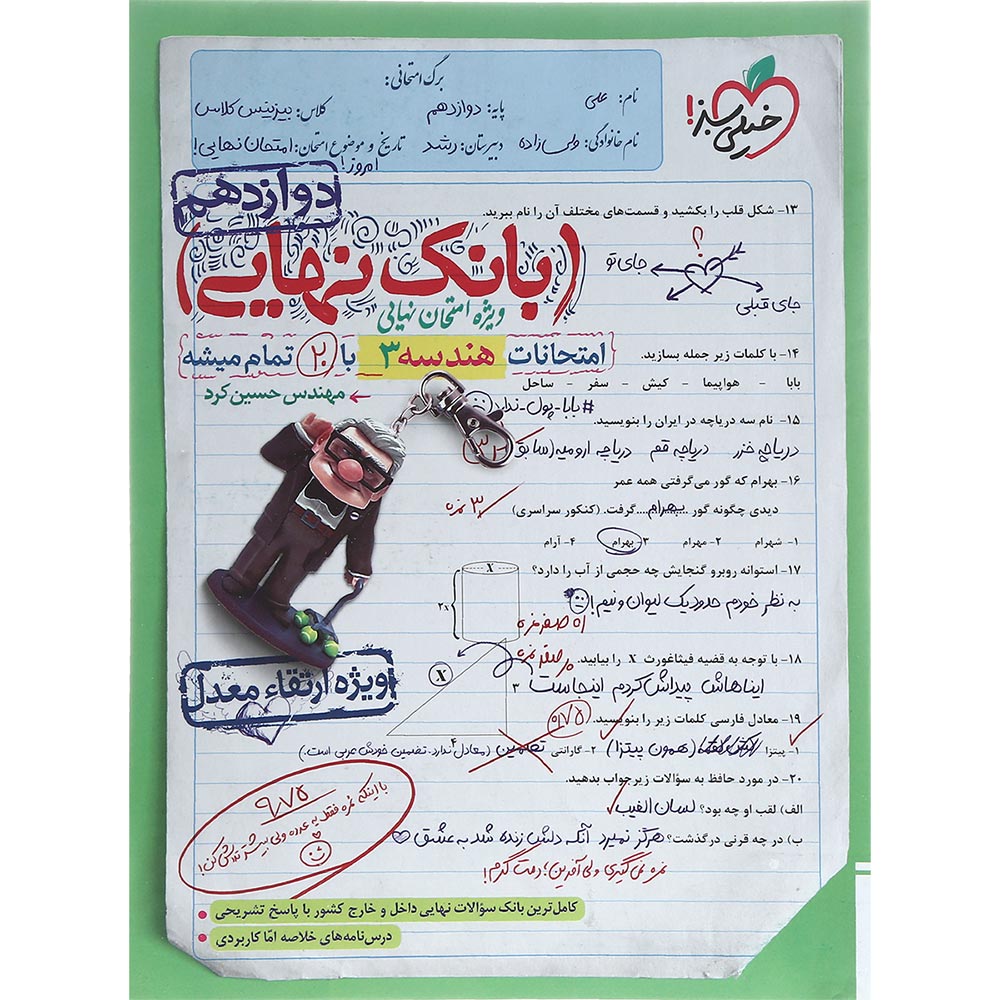 برگ امتحانی:
نام: علی
پایه: دوازدهم
کلاس: بیزینس کلاس
نام خانوادگی: ولی زاده
دبیرستان: رشد
تاریخ و موضوع امتحان: امتحان نهایی!
امروز!
خیلی سبز!
دوازدهم
۱۳- شکل قلب را بکشید و قسمت‌های مختلف آن را نام ببرید.
(بانک نهایی)
؟
جای تو
جای قبلی
ویژه امتحان نهایی
امتحانات هندسه ۳ با ۲۰ تمام میشه
مهندس حسین کرد
۱۴- با کلمات زیر جمله بسازید.
بابا - هواپیما - کیش - سفر - ساحل
#بابا-پول-ندارد
۱۵- نام سه دریاچه در ایران را بنویسید.
دریاچه خزر دریاچه قم دریاچه ارومیه (سابق)
۱۶- بهرام که گور می‌گرفتی همه عمر
دیدی چگونه گور ....بهرام.... گرفت. (کنکور سراسری)
۳ نمره
۱- شهرام ۲- مهرام ۳- بهرام ۴- آرام
۱۷- استوانه روبرو گنجایش چه حجمی از آب را دارد؟
X
۲x
به نظر خودم حدود یک لیوان و نیم!
اه صفر نمره
۱۸- با توجه به قضیه فیثاغورث X را بیابید.
صفر نمره
X
ایناهاش پیداش کردم اینجاست
۳
۴
ویژه ارتقاء معدل
۱۹- معادل فارسی کلمات زیر را بنویسید.
۰/۷۵
۱- پیتزا (همون پیتزا) ۲- گارانتی تضمین (معادل ندارد. تضمین خودش عربی است.)
۲۰- در مورد حافظ به سؤالات زیر جواب بدهید.
الف) لقب او چه بود؟ لسان الغیب
ب) در چه قرنی درگذشت؟ هرگز نمیرد آنکه دلش زنده شد به عشق
نمره نمی‌گیری ولی آفرین؛ دمت گرم!
۹/۷۵
با اینکه نمره فقط یه عدده ولی بیشتر تلاش کن!
کامل‌ترین بانک سؤالات نهایی داخل و خارج کشور با پاسخ تشریحی
درس‌نامه‌های خلاصه امّا کاربردی